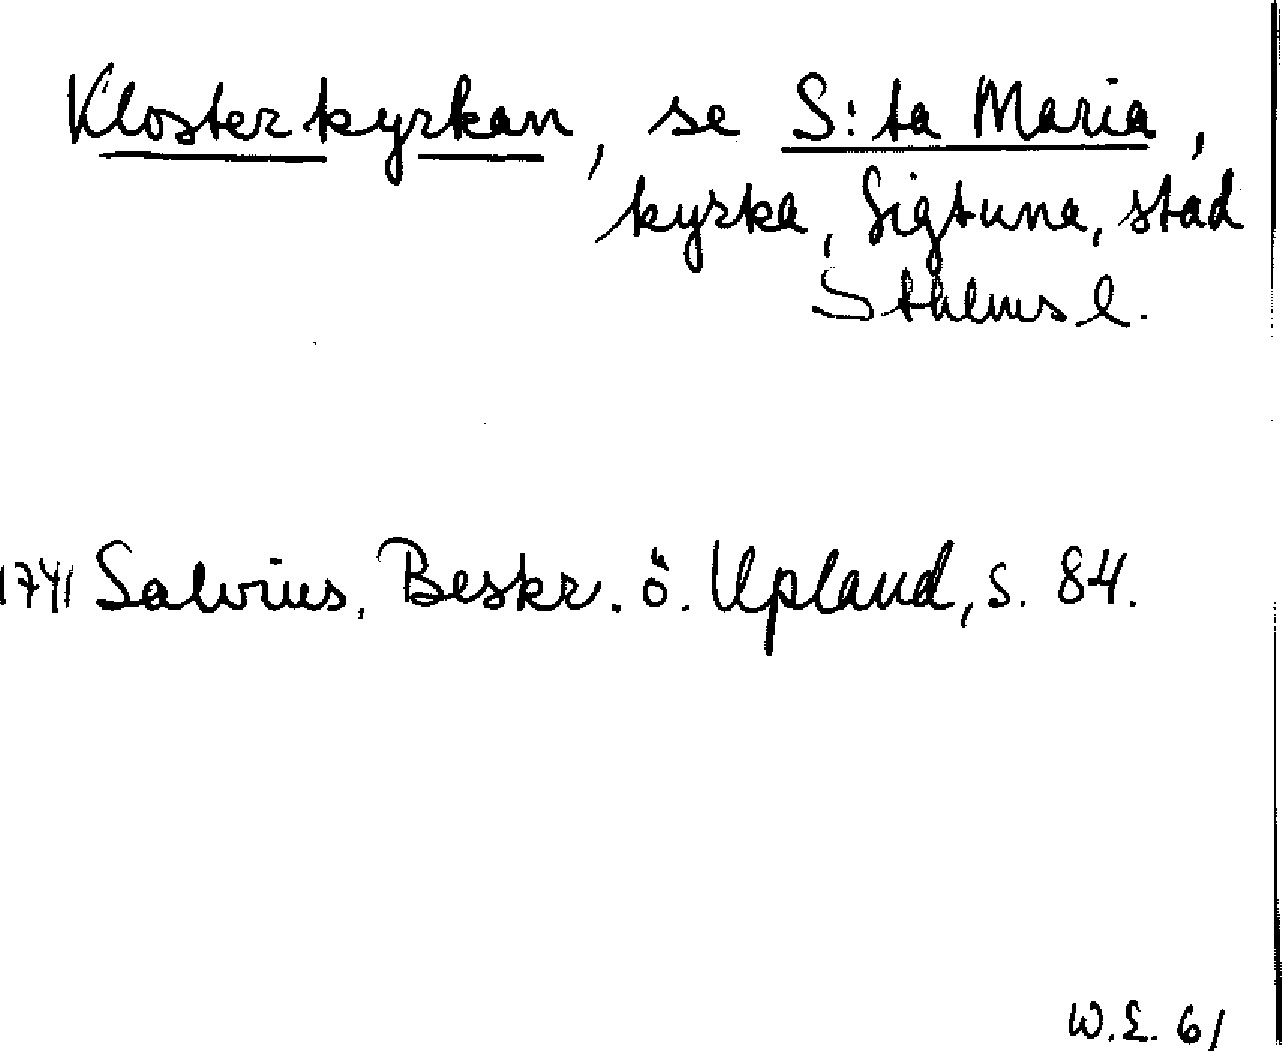 Klosterkyrkan, se S:ta Maria,
kyrka, Sigtuna, stad
Sthlms l.
1741 Salvius, Beskr. ö. Upland, s. 84.
W.E. 61